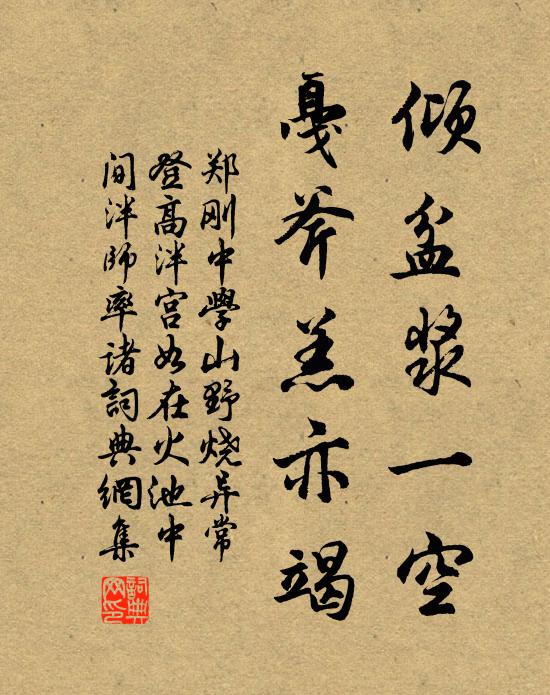 倾盆浆一空
戛斧羔亦竭
郑刚中學山野烧异常
登高泮宫如在火池中
间泮師率诸詞典網集
詞典网印